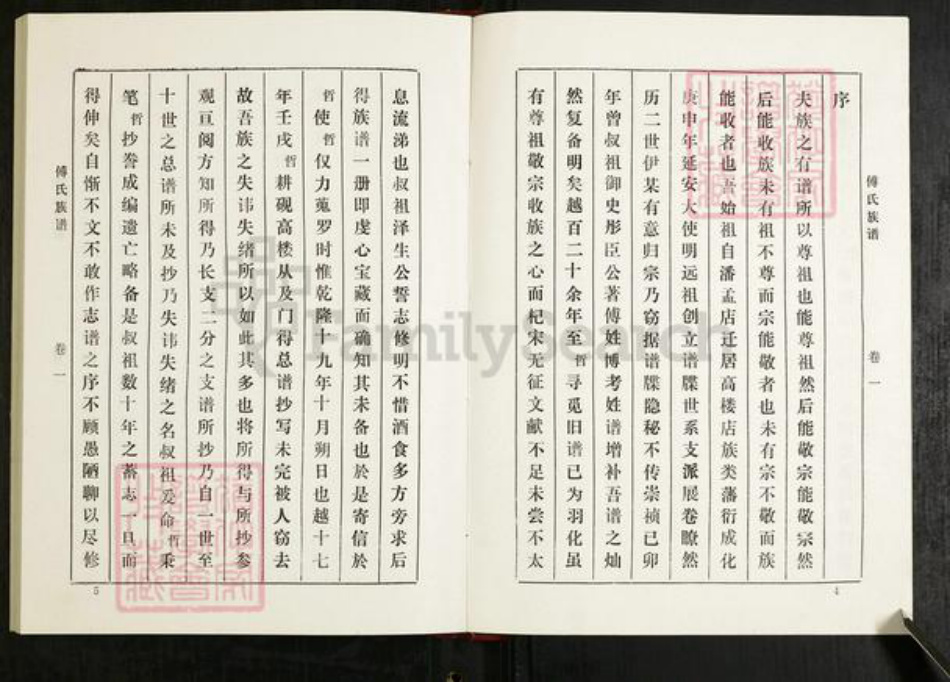 序
夫族之有谱所以尊祖也能尊祖然后能敬宗能敬宗然
后能收族未有祖不尊而宗能敬者也未有宗不敬而族
能收者也吾始祖自潘孟店迁居高楼店族类藩衍成化
庚申年延安大使明远祖创立谱牒世系支派展卷瞭然
历二世伊某有意归宗乃窃据谱牒隐秘不传崇祯已卯
年曾叔祖御史彤臣公著傅姓博考姓谱增补吾谱之灿
然复备明矣越百二十余年至哲寻觅旧谱已为羽化虽
有尊祖敬宗收族之心而杞宋无征文献不足未尝不太
傅氏族谱
卷一
4
息流涕也叔祖泽生公誓志修明不惜酒食多方旁求后
得族谱一册即虔心宝藏而确知其未备也於是寄信於
哲使哲仅力蒐罗时惟乾隆十九年十月朔日也越十七
年壬戌哲耕砚高楼从及门得总谱抄写未完被人窃去
故吾族之失讳失绪所以如此其多也将所得与所抄参
观亘阅方知所得乃长支二分之支谱所抄乃自一世至
十世之总谱所未及抄乃失讳失绪之名叔祖爰命哲秉
笔哲抄誊成编遗亡略备是叔祖数十年之蓄志一旦而
得伸矣自惭不文不敢作志谱之序不顾愚陋聊以尽修
傅氏族谱
卷一
5
FamilySearch